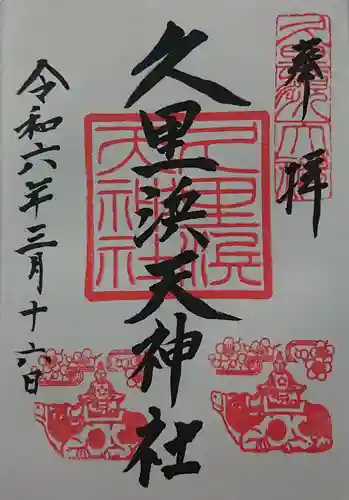 奉拝
久里浜天神社
令和六年三月十六日
久里浜
天神社